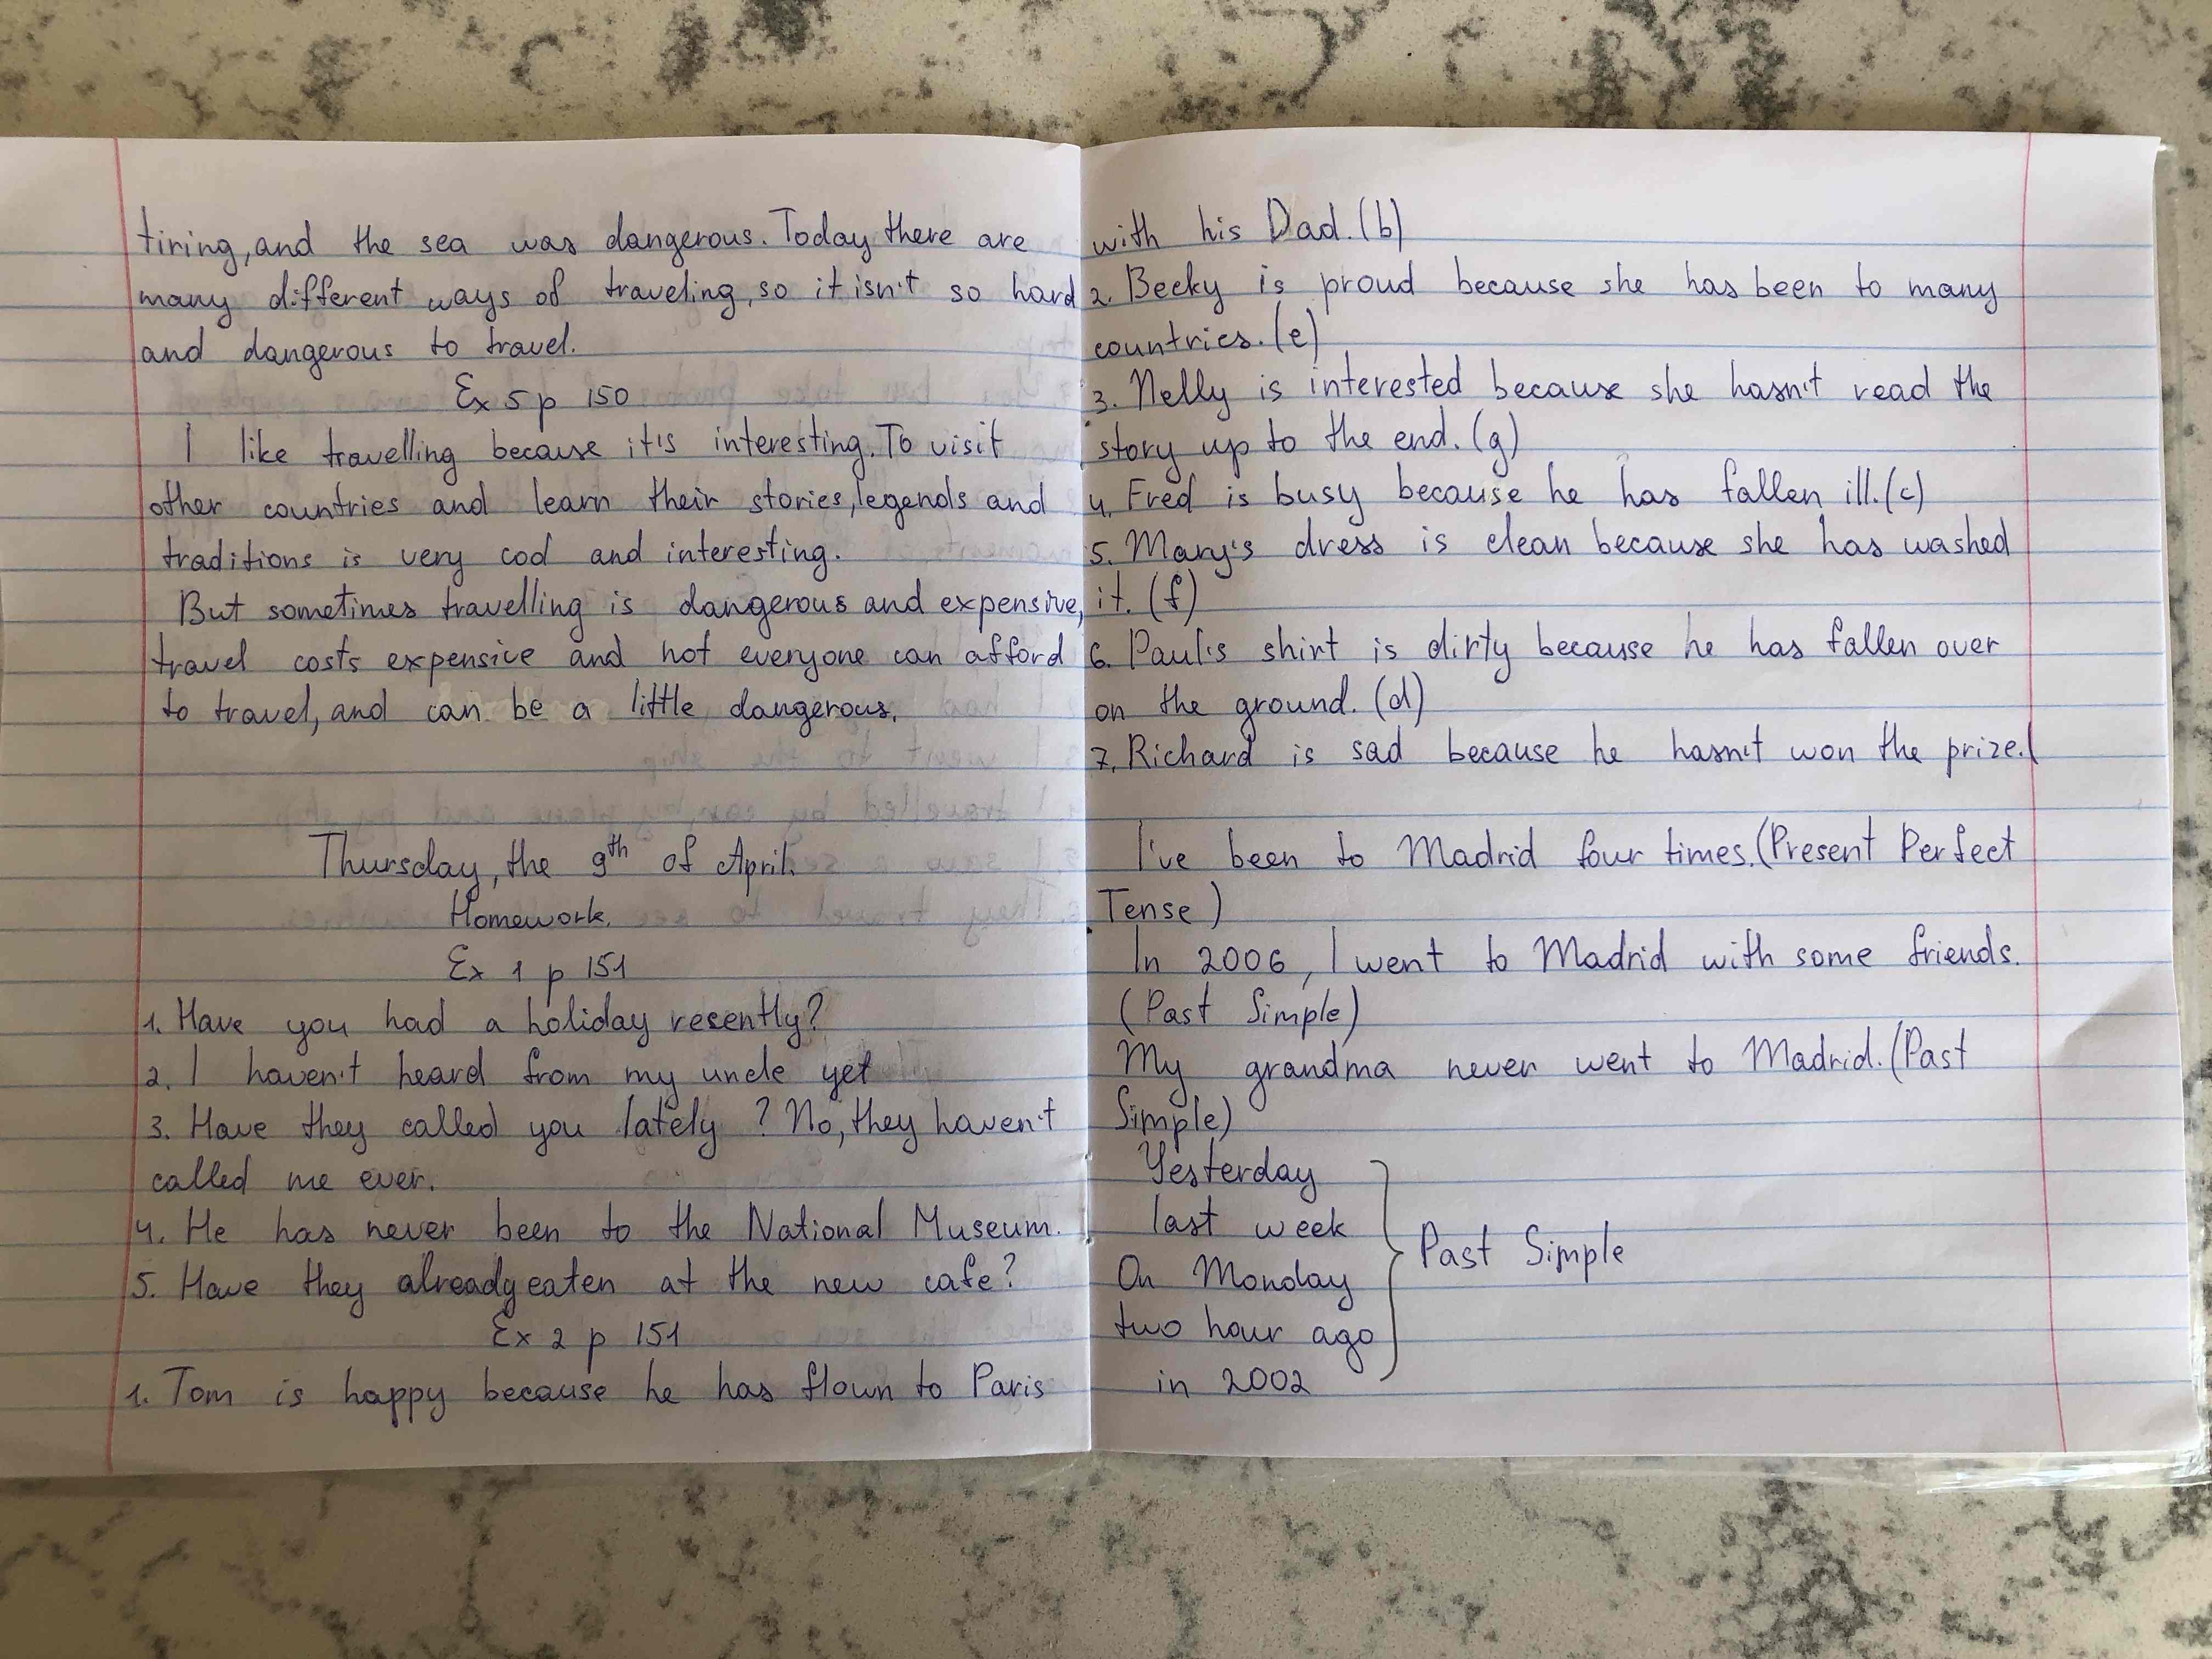 tiring, and the sea was dangerous. Today there are
many different ways of traveling, so it isn't so hard
and dangerous to travel.
Ex 5 p 150
I like travelling because it's interesting. To visit
other countries and learn their stories, legends and
traditions is very cool and interesting.
But sometimes travelling is dangerous and expensive,
travel costs expensive and not everyone can afford
to travel, and can be a little dangerous.
Thursday, the 9th of April.
Homework.
Ex 1 p 151
1. Have you had a holiday recently?
2. I haven't heard from my uncle yet
3. Have they called you lately? No, they haven't
called me ever.
4. He has never been to the National Museum.
5. Have they already eaten at the new cafe?
Ex 2 p 151
1. Tom is happy because he has flown to Paris
with his Dad. (b)
2. Becky is proud because she has been to many
countries. (e)
3. Nelly is interested because she hasn't read the
story up to the end. (g)
4. Fred is busy because he has fallen ill. (c)
5. Mary's dress is clean because she has washed
it. (f)
6. Paul's shirt is dirty because he has fallen over
on the ground. (d)
7. Richard is sad because he hasn't won the prize. (
I've been to Madrid four times. (Present Perfect
Tense)
In 2006, I went to Madrid with some friends.
(Past Simple)
My grandma never went to Madrid. (Past
Simple)
Yesterday
last week
On Monday
two hour ago
in 2002
Past Simple